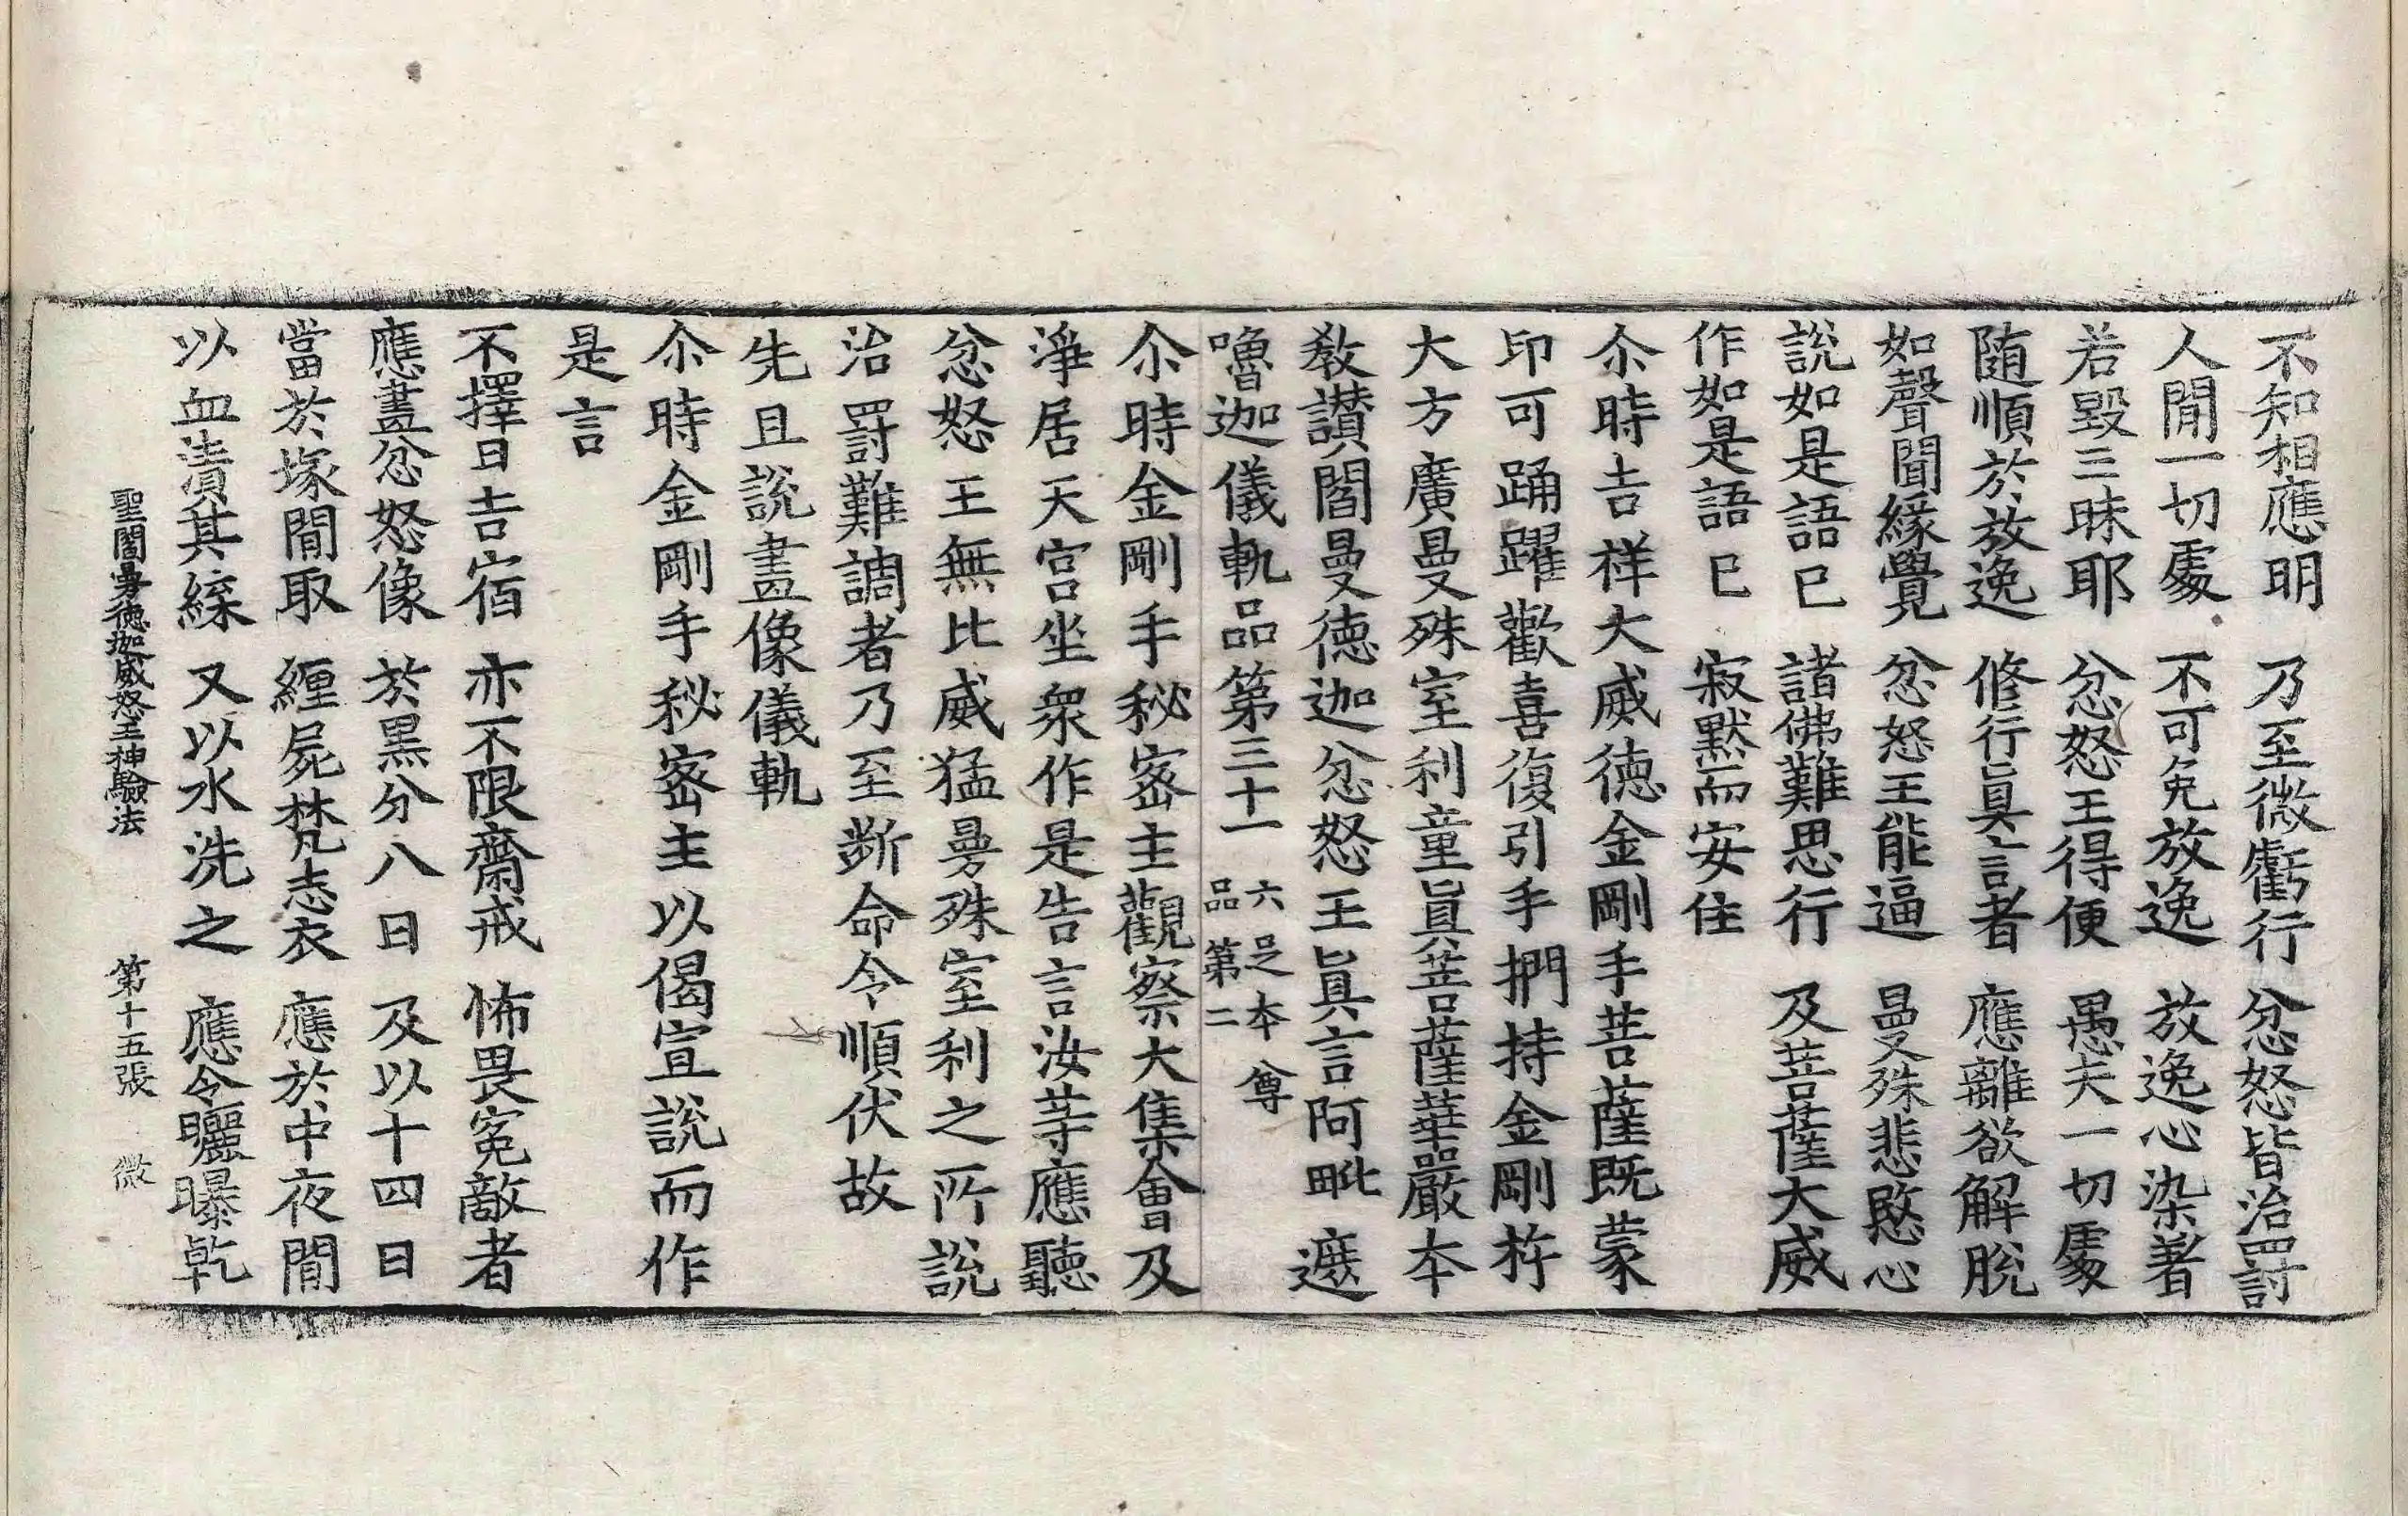 不知相應明 乃至微虧行 忿怒皆治罰
人間一切處 不可免放逸 放逸心染著
若毀三昧耶 忿怒王得便 愚夫一切處
随順於放逸 修行真言者 應離欲解脫
如聲聞緣覺 忿怒王能逼 曼殊悲愍心
說如是語已 諸佛難思行 及菩薩大威
作如是語已 寂默而安住
尒時吉祥大威德金剛手菩薩既蒙
印可踊躍歡喜復引手捫持金剛杵
大方廣曼殊室利童真菩薩華嚴本
教讃閻曼德迦忿怒王真言阿毗遮
嚕迦儀軌品第三十一 六足本尊品第二
尒時金剛手秘密主觀察大集會及
淨居天宮坐衆作是告言汝等應聽
忿怒王無比威猛曼殊室利之所說
治罸難調者乃至斷命令順伏故
先且說畫像儀軌
尒時金剛手秘密主以偈宣說而作
是言
不擇日吉宿 亦不限齋戒 怖畏寃敵者
應畫忿怒像 於黒分八日 及以十四日
當於塚間取 纏屍梵志衣 應於中夜間
以血漬其緤 又以水洗之 應令曬曝乹
聖閻曼德迦威怒王神驗法 第十五張 微